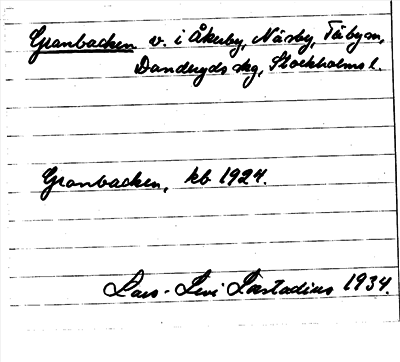 Granbacken v. i Åkerby, Näsby, Täby sn,
Danderyds skg, Stockholms l.
Granbacken, kb 1924.
Lars-Levi Læstadius 1934.